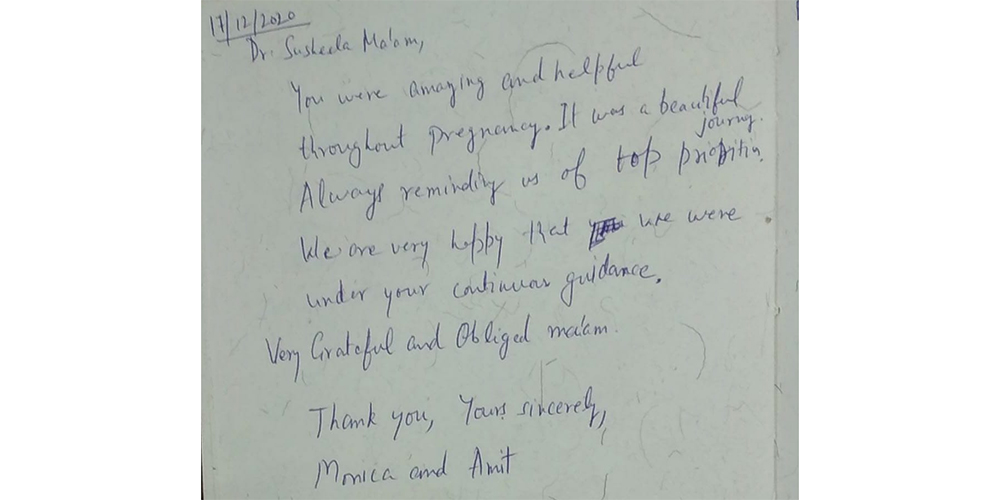 17/12/2020
Dr. Susheela Ma'am,
You were amazing and helpful
throughout pregnancy. It was a beautiful
journey.
Always reminding us of top priorities.
We are very happy that we were
under your continuous guidance.
Very Grateful and Obliged ma'am.
Thank you, Yours sincerely,
Monica and Amit